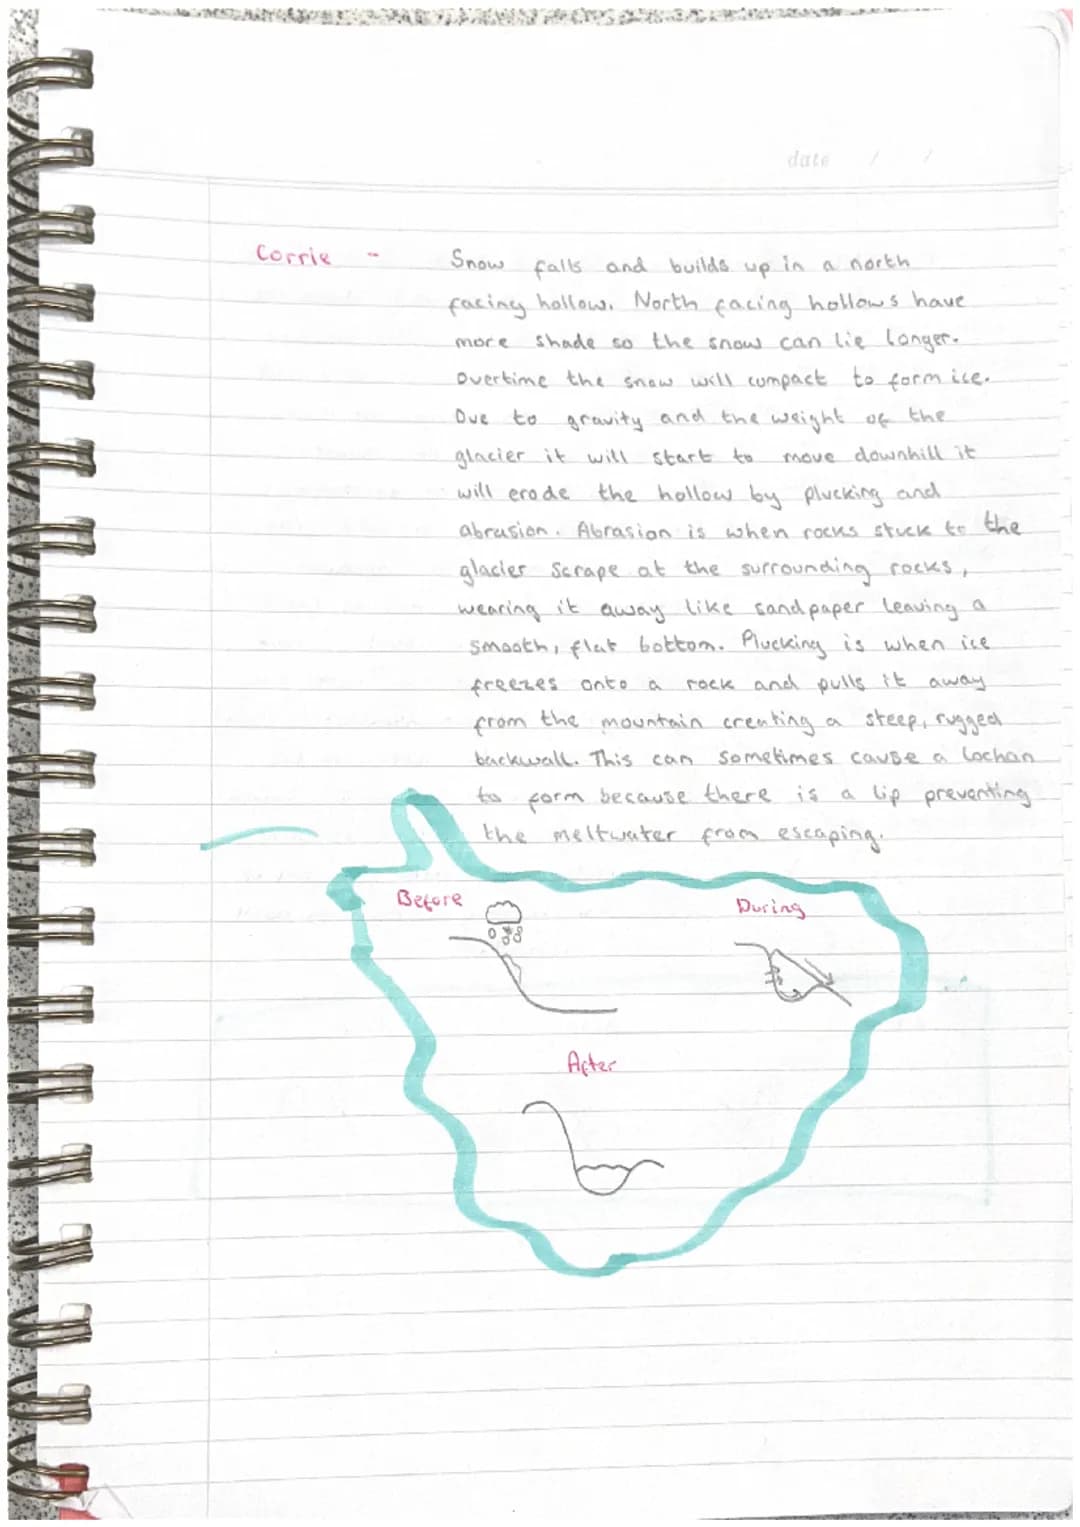 date / /
Corrie - Snow falls and builds up in a north
facing hollow. North facing hollows have
more shade so the snow can lie longer.
Overtime the snow will compact to form ice.
Due to gravity and the weight of the
glacier it will start to move downhill it
will erode the hollow by plucking and
abrasion. Abrasion is when rocks stuck to the
glacier scrape at the surrounding rocks,
wearing it away like sandpaper leaving a
smooth, flat bottom. Plucking is when ice
freezes onto a rock and pulls it away
from the mountain creating a steep, rugged
backwall. This can sometimes cause a lochan
to form because there is a lip preventing
the meltwater from escaping.
Before
During
After